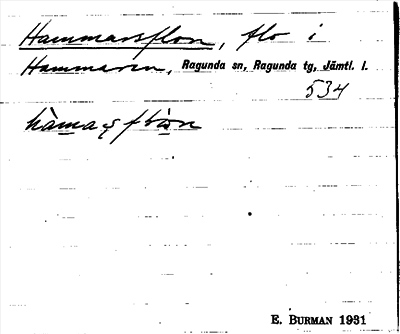 Hammarsflon, flo i
Hammaren, Ragunda sn, Ragunda tg, Jämtl. l.
534
E. BURMAN 1931